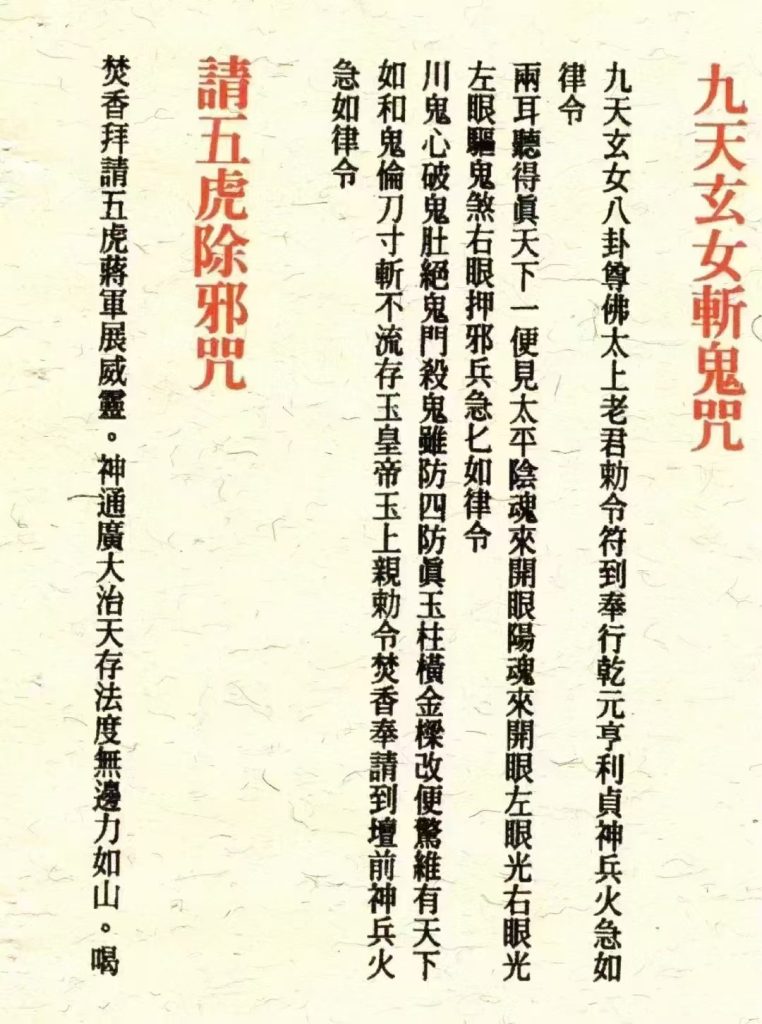 九天玄女斬鬼咒
九天玄女八卦尊佛太上老君勅令符到奉行乾元亨利貞神兵火急如
律令
兩耳聽得眞天下一便見太平陰魂來開眼陽魂來開眼左眼光右眼光
左眼驅鬼煞右眼押邪兵急匕如律令
川鬼心破鬼肚絕鬼門殺鬼雖防四防眞玉柱橫金樑改便驚維有天下
如和鬼倫刀寸斬不流存玉皇帝玉上親勅令焚香奉請到壇前神兵火
急如律令
請五虎除邪咒
焚香拜請五虎蔣軍展威靈。神通廣大治天存法度無邊力如山。喝